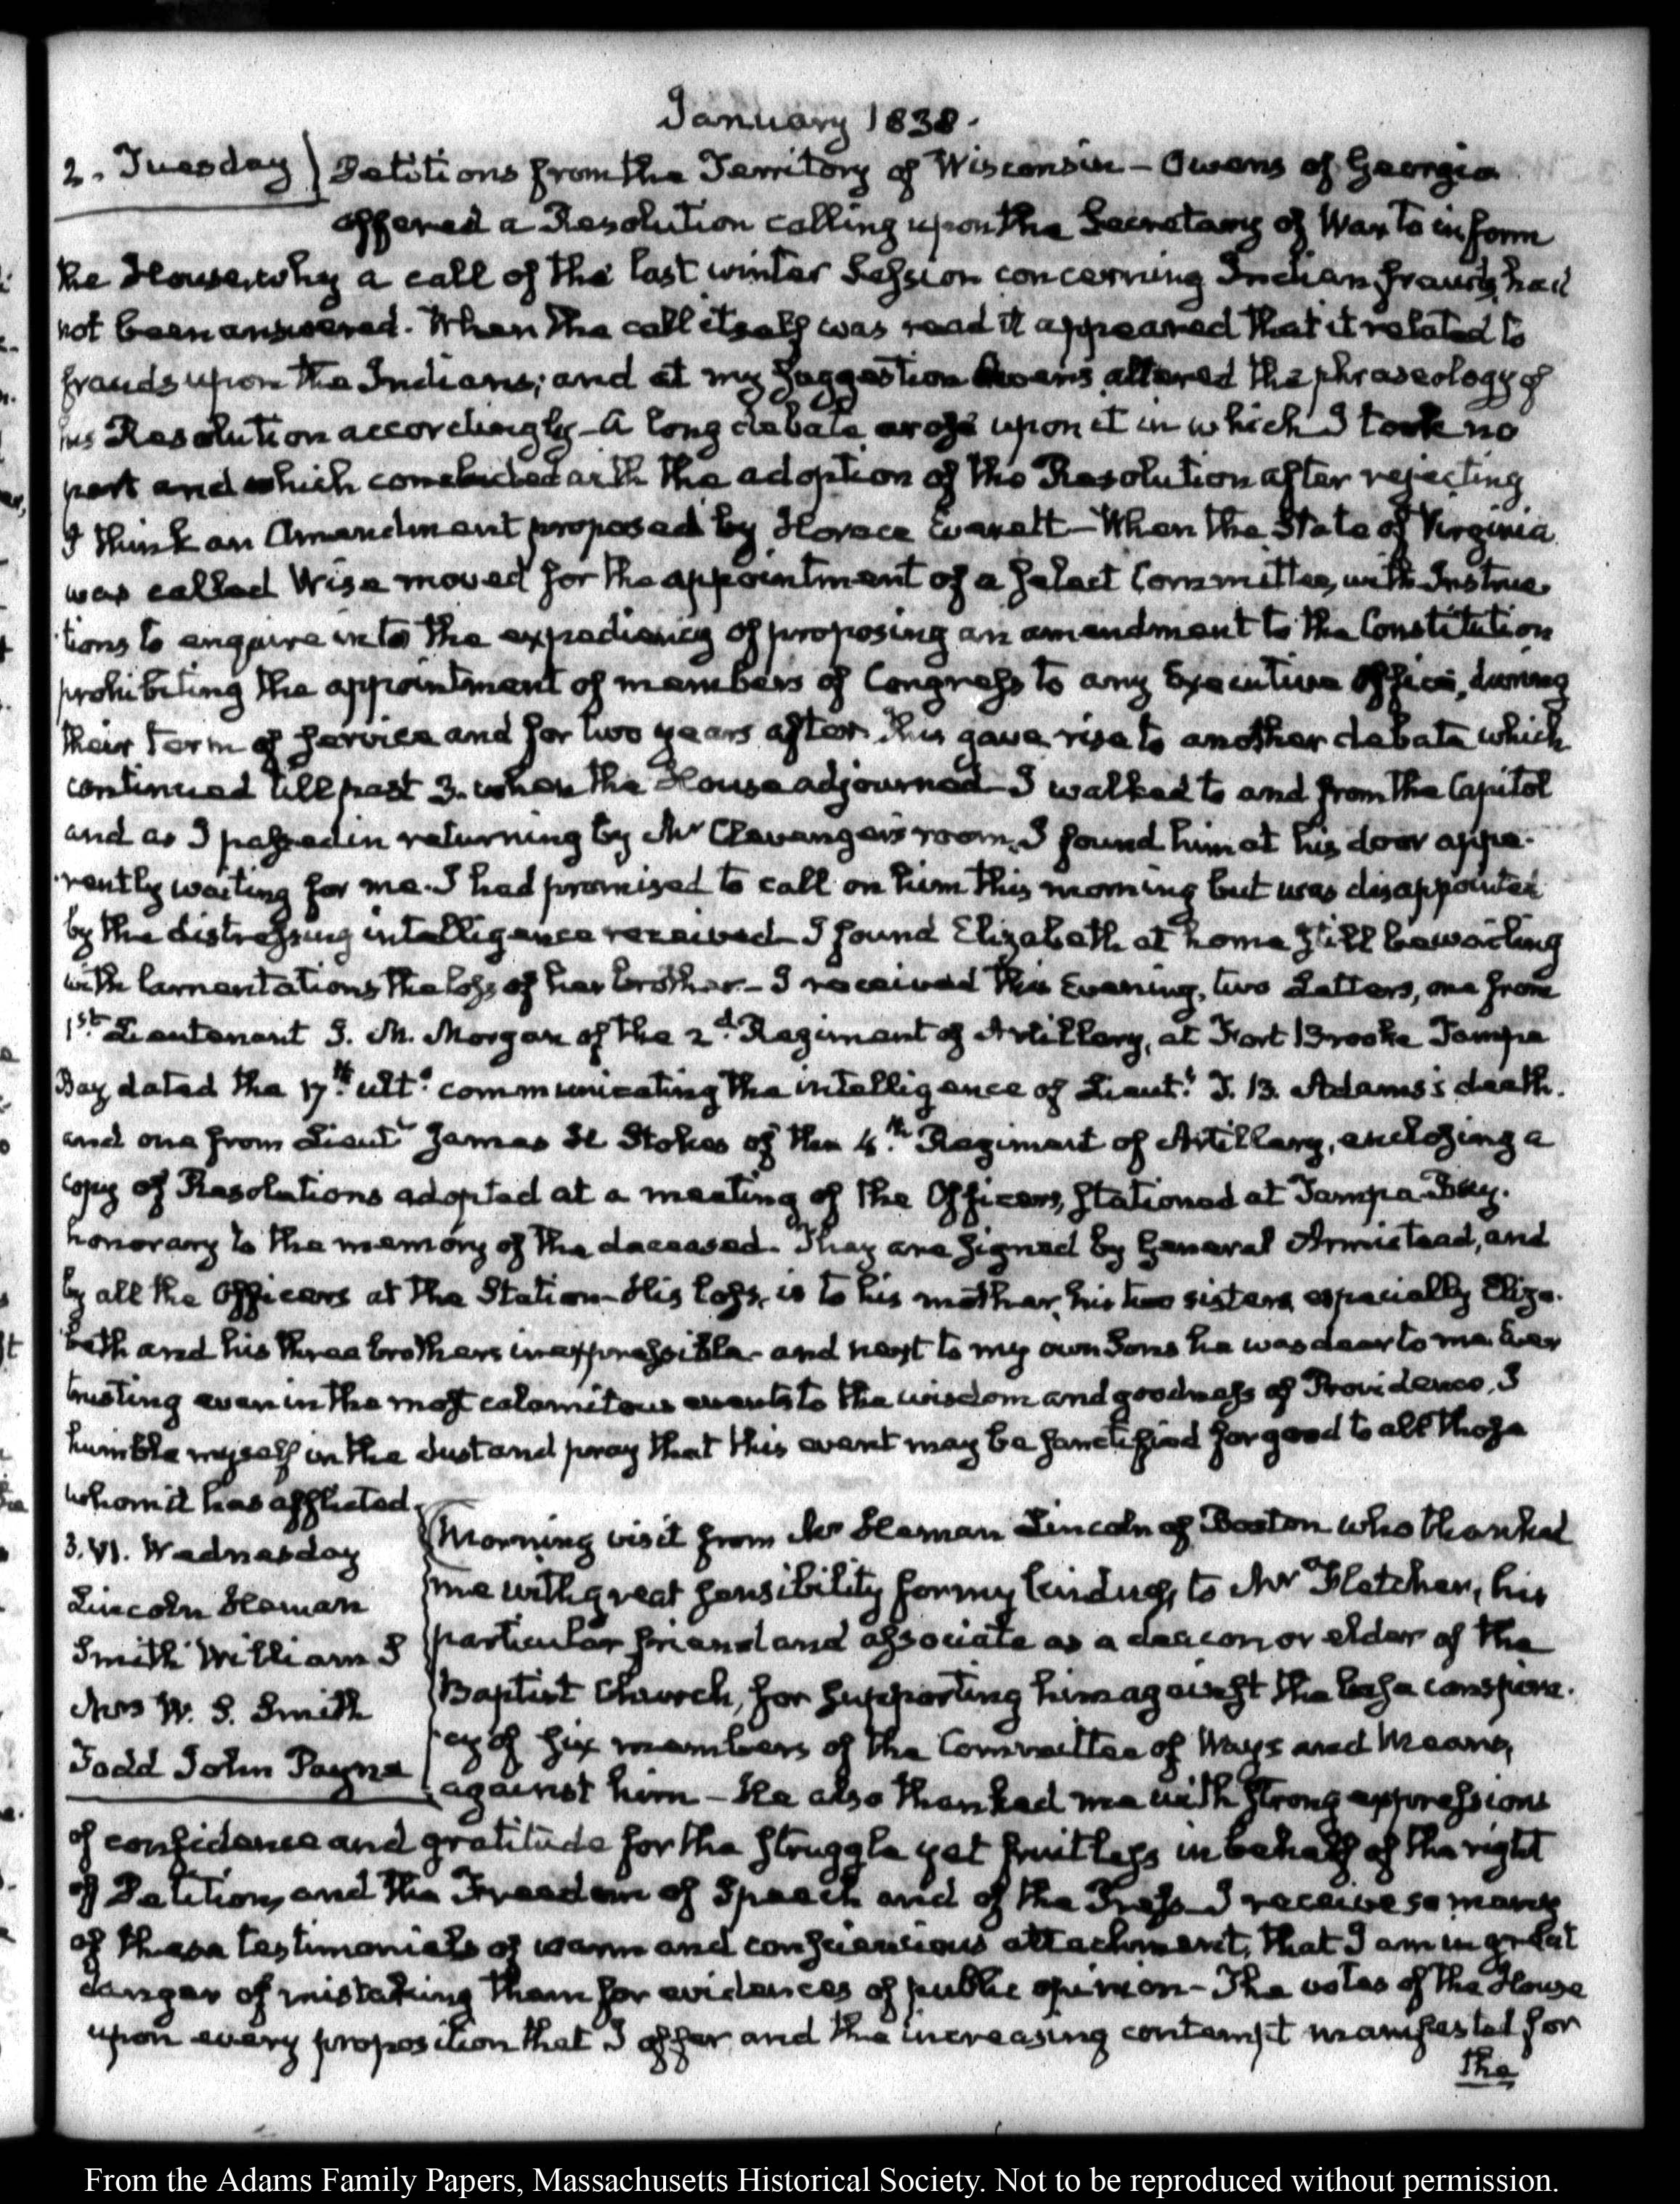 January 1838.
2. Tuesday) Petitions from the Territory of Wisconsin – Owens of Georgia
offered a Resolution calling upon the Secretary of War to inform
the House, why a call of the last winter Session concerning Indian frauds, had
not been answered. When the call itself was read it appeared that it related to
frauds upon the Indians; and at my suggestion Owens altered the phraseology of
his Resolution accordingly – A long debate arose upon it in which I took no
part and which concluded with the adoption of the Resolution after rejecting
I think an Amendment proposed by Horace Everett – When the State of Virginia
was called Wise moved for the appointment of a select Committee, with Instruc-
tions to enquire into the expediency of proposing an amendment to the Constitution
prohibiting the appointment of members of Congress to any Executive Office, during
their term of service and for two years after. This gave rise to another debate which
continued till past 3. when the House adjourned – I walked to and from the Capitol
and as I passed in returning by Mr Clavenger's room, I found him at his door appa-
rently waiting for me. I had promised to call on him this morning but was disappointed
by the distressing intelligence received – I found Elizabeth at home still bewailing
with lamentations the loss of her brother – I received this Evening, two Letters, one from
1st Lieutenant J. M. Morgan of the 2d Regiment of Artillery, at Fort Brooke Tampa
Bay dated the 17th ulto communicating the intelligence of Lieutt J. B. Adams's death.
and one from Lieutt James H Stokes of the 4th Regiment of Artillery, enclosing a
copy of Resolutions adopted at a meeting of the Officers, stationed at Tampa Bay.
honorary to the memory of the deceased. They are signed by General Armistead, and
by all the Officers at the Station – His loss, is to his mother, his two sisters, especially Eliza-
beth and his three brothers inexpressible – and next to my own Sons he was dear to me. Ever
trusting even in the most calamitous events to the wisdom and goodness of Providence, I
humble myself in the dust and pray that this event may be sanctified for good to all those
whom it has afflicted.
3. VI. Wednesday
Lincoln Heman
Smith William S
Mrs W. S. Smith
Todd John Payne
Morning visit from Mr Heman Lincoln of Boston who thanked
me with great sensibility for my kindness, to Mr Fletcher, his
particular friend and associate as a deacon or elder of the
Baptist Church, for supporting him against the base conspira-
cy of six members of the Committee of Ways and Means,
against him – He also thanked me with strong expressions
of confidence and gratitude for the struggle yet fruitless in behalf of the right
of Petition, and the Freedom of Speech and of the Press – I receive so many
of these testimonials of warm and conscientious attachment, that I am in great
danger of mistaking them for evidences of public opinion – The votes of the House
upon every proposition that I offer, and the increasing contempt manifested for
the
From the Adams Family Papers, Massachusetts Historical Society. Not to be reproduced without permission.